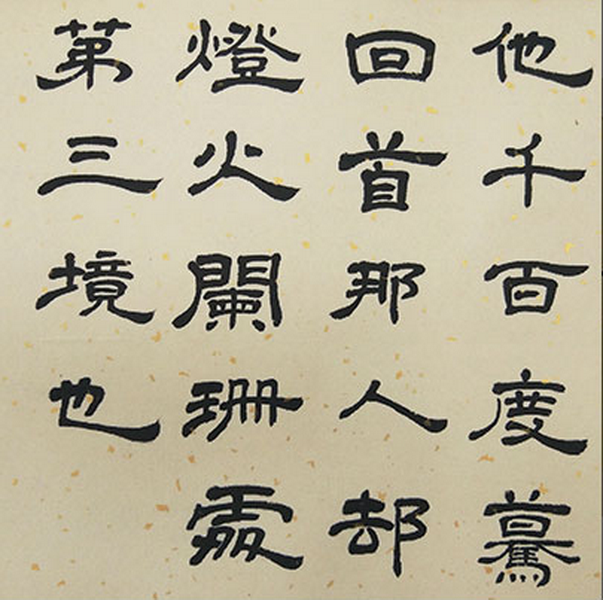 他千百度驀
回首那人却
燈火闌珊處
第三境也